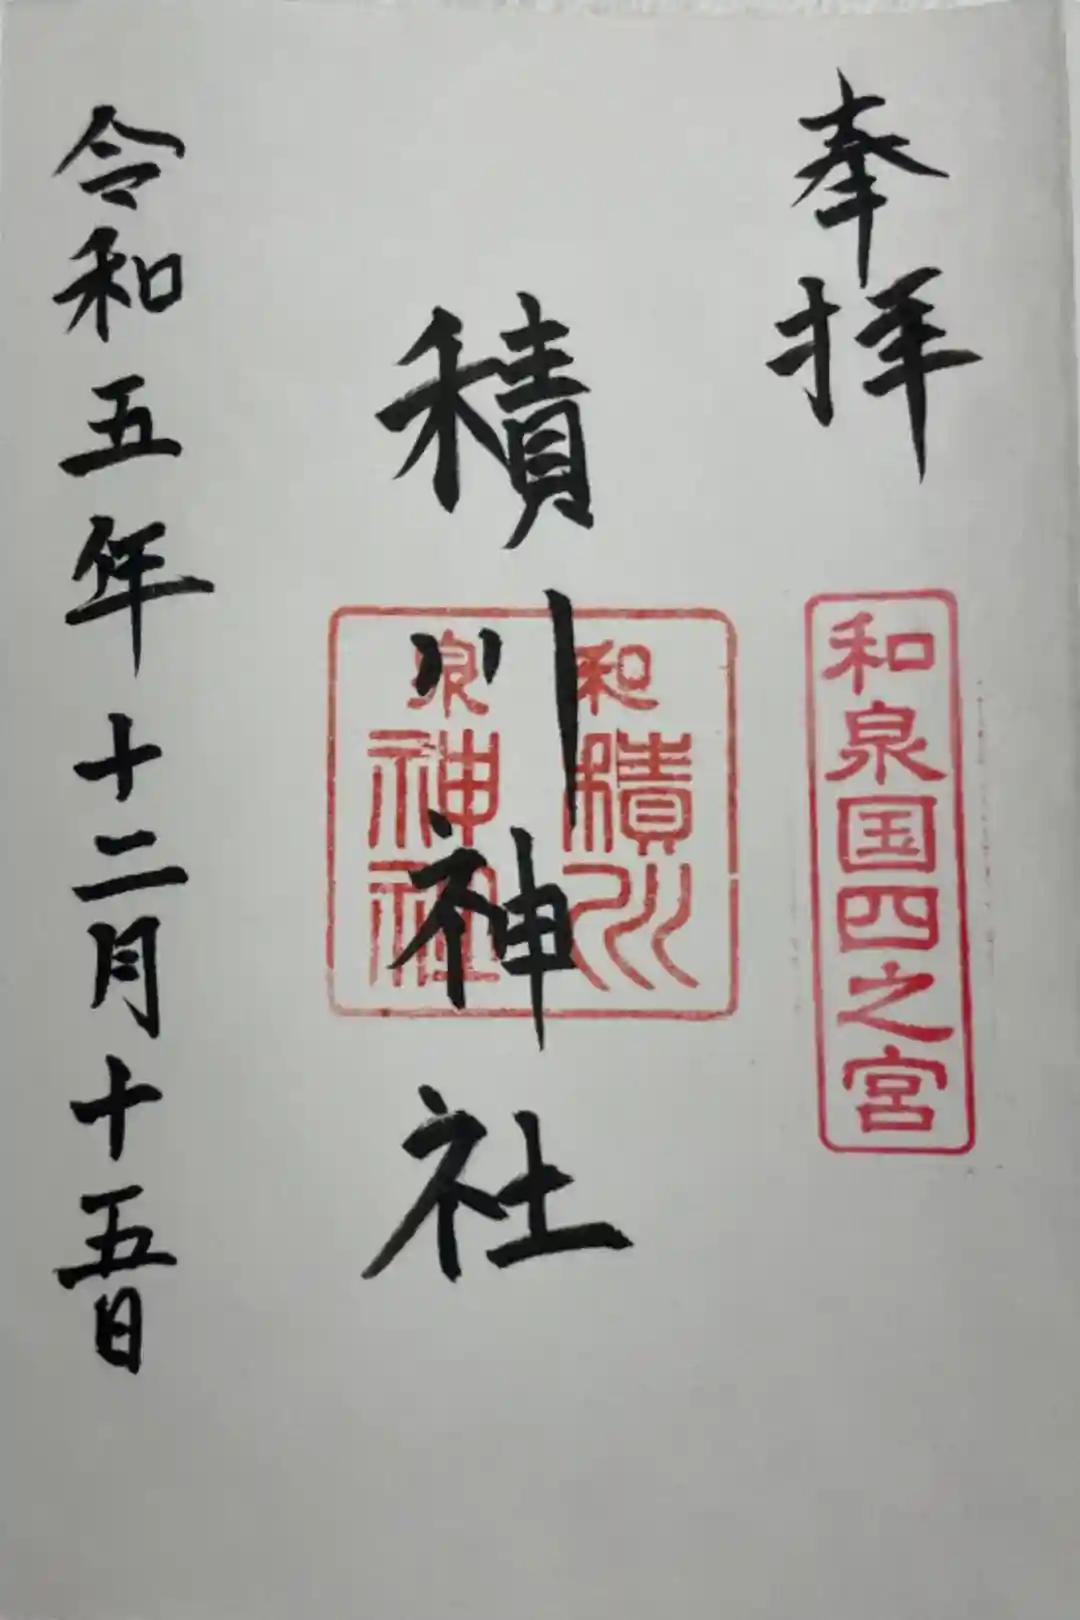 奉拝
和泉国四之宮
積川神社
和積川
泉神社
令和五年十二月十五日